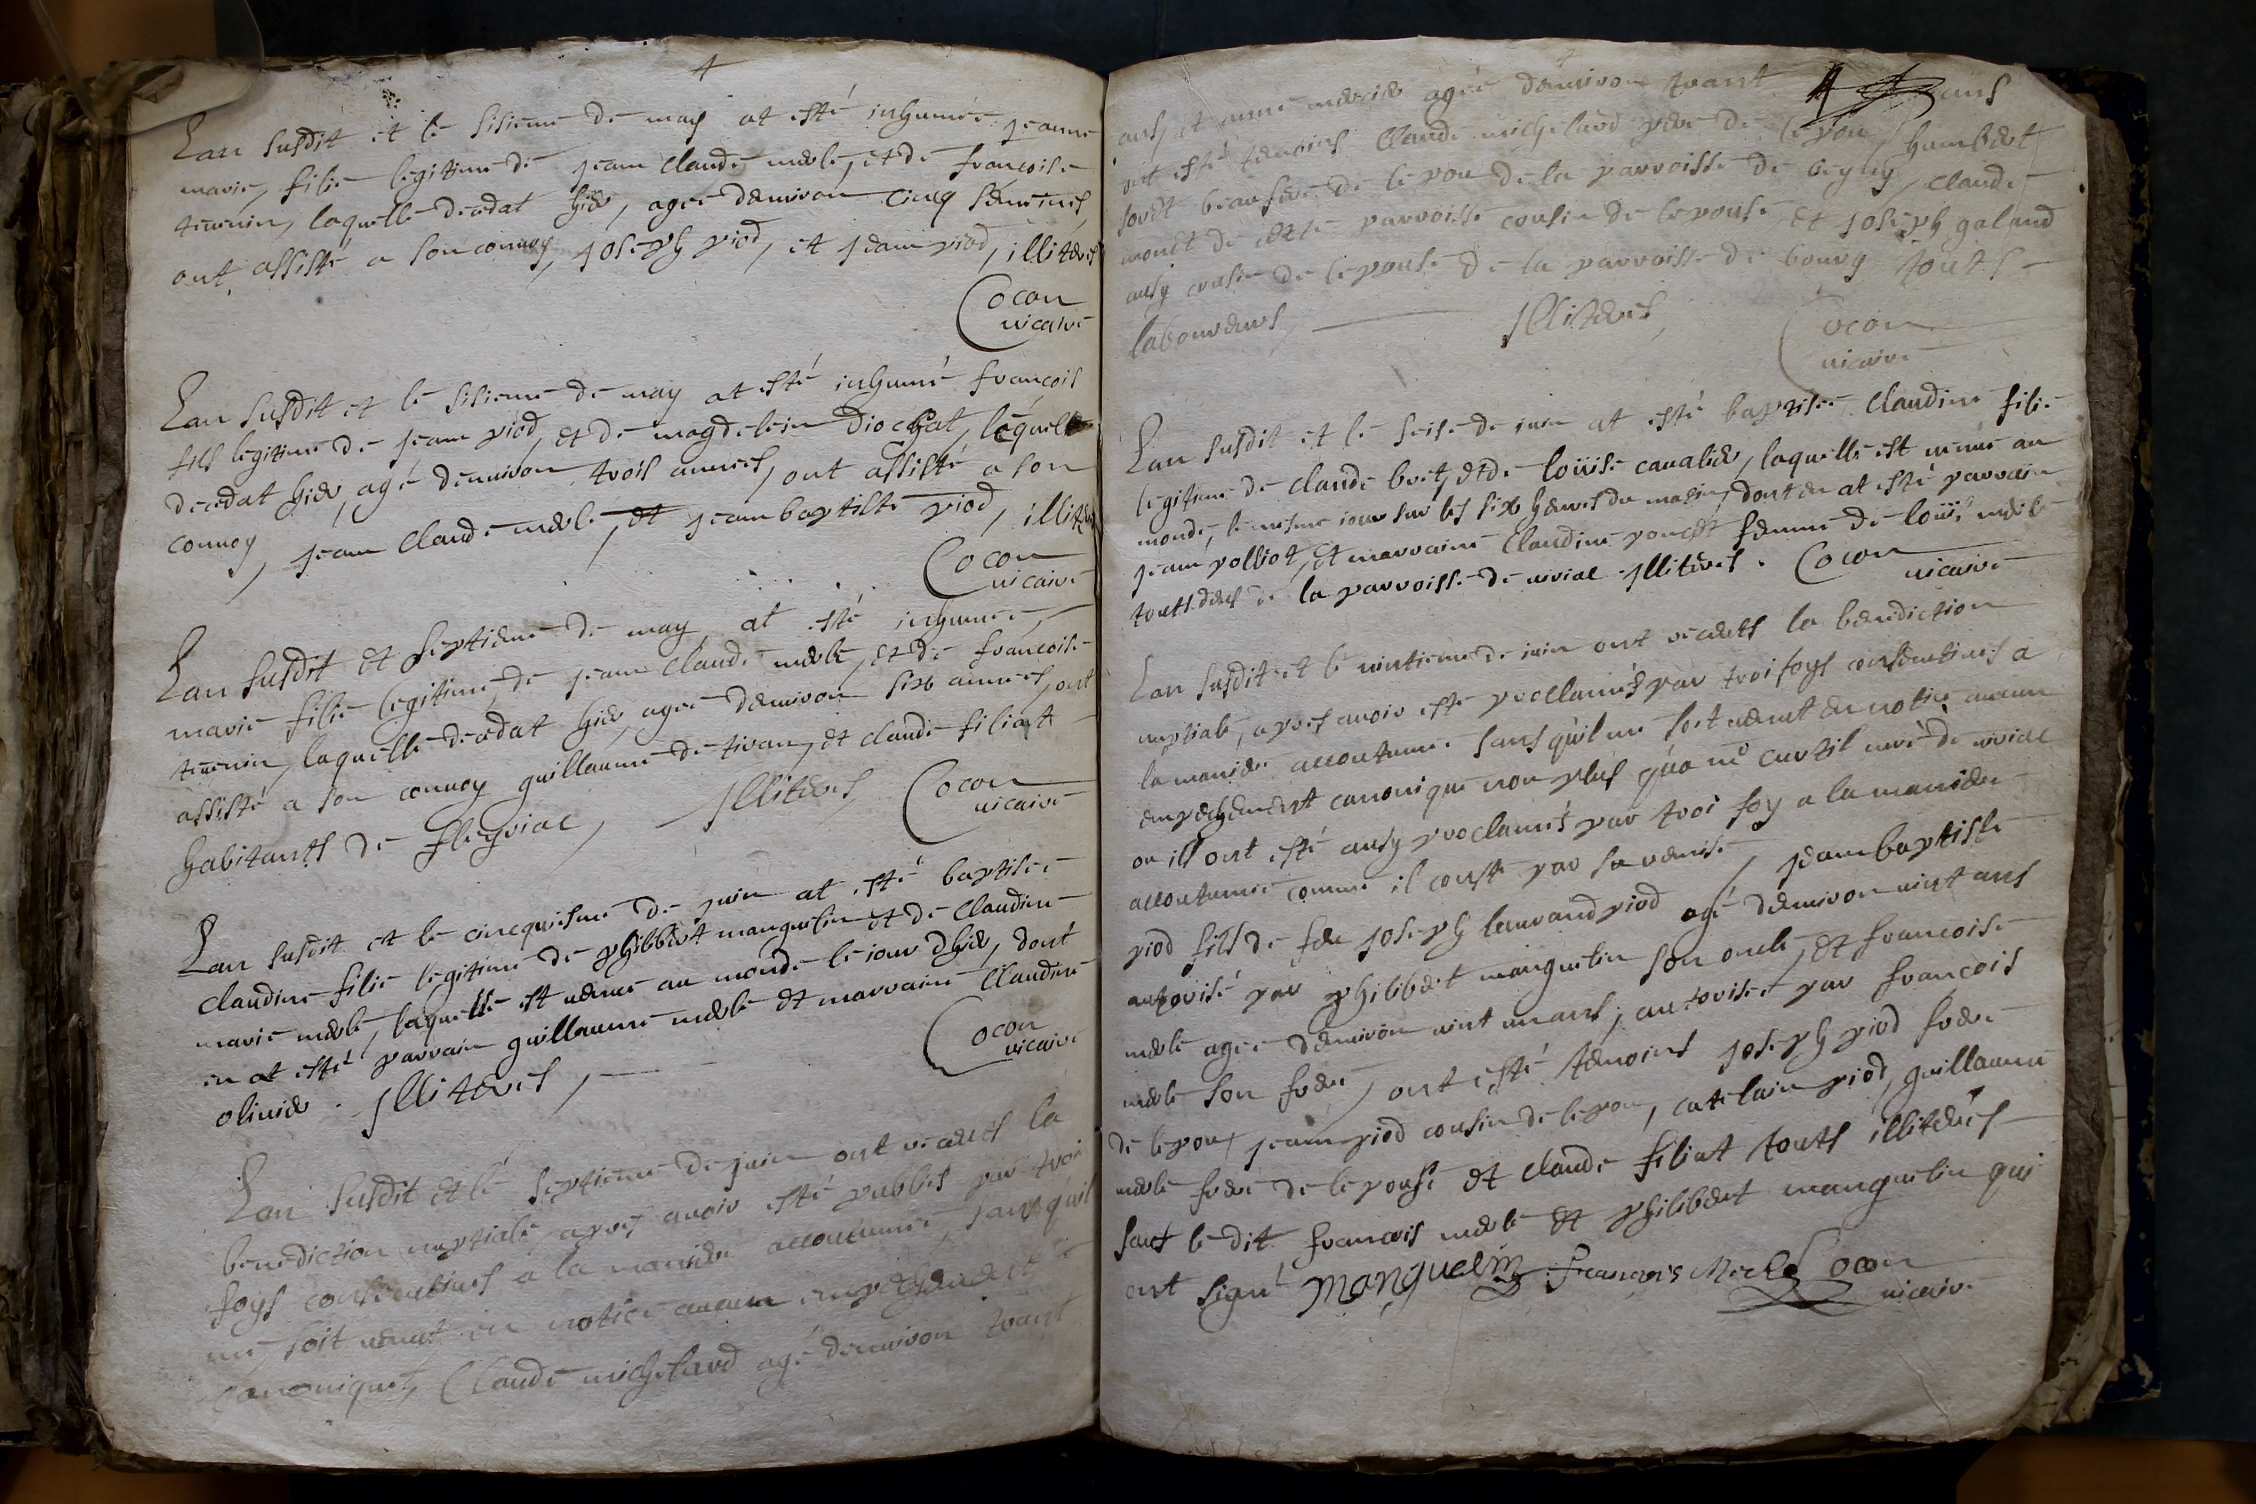 Lan susdit et le sisieme de may at esté inhumée jeanne
marie, filie legitime de jean claude merle, et de francoise
teuenin, laquelle decedat hier, agee denuiron cinq semeines,
ont assisté a son conuoy, joseph piod, et jean piod, illiteres
Cocon
uicaire
Lan susdit et le sisieme de may at esté inhumé françois
fils legitime de jean piod, et de magdelein diochat, lequel
decedat hier, agé denuiron trois annees, ont assisté a son
conuoy, jean claude merle, et jean baptiste piod, illiteres
Cocon
uicaire
Lan susdit et septieme de may at esté inhumée,
marie filie legitime, de jean claude merle, et de francoise
teuenin, laquelle decedat hier, agee denuiron six annees, ont
assisté a son conuoy guillaume detiuan, et claude filiat
habitants de fleyriac, illiteres, Cocon
uicaire
Lan susdit et le cincquiesme de juin at esté baptisee
claudine filie legitime de philibert manguelin et de claudine
marie merle, laquelle est uenue au monde le iour dhier, dont
en at esté parrain guillaume merle et marraine claudine
oliuier. illiteres,
Cocon
uicaire
Lan susdit et le septieme de juin ont receuts la
benediction nuptiale apres auoir esté publiés par troi
foys consecutiues a la manider accoutumée sans quil
ne soit uenut en notice aucun empechement
canonique, Claude michelard agé denuiron trant
ans, et anne mercier agée denuiron trant ans
ont esté temoins Claude michelard pere de lepou, humbert
beaufrere de lepou de la parroisse de
monet de cette parroisse cousin de lepouse, et joseph galand
ausy cousin de lepouse de la parroisse de bourg touts
laboureurs, illiteres,
Cocon
uicaire
Lan susdit et le seise de iuin at esté baptisee Claudine filie
legitime de claude bret, et de loüise caualier, laquelle est uenue au
monde, le mesme iour sur les six heures du matin, dont en at esté parrain
jean polliot, et marraine Claudine poncet femme de loüis merle
touts deus de la parroisse de uiriac illiteres. Cocon
uicaire
Lan susdit et le uintieme de iuin ont receuts la benediction
nuptiale, apres auoir esté proclamés par troi foys consecutiues a
la manider accoutumee sans quil ne soit uenut en notice aucun
empechement canonique non plus qua mr curtil curé de uiriac
ou ils ont esté ausy proclamés par troi foy a la manider
accoutumée comme il conste par sa remise, jean baptiste
piod fils de feu joseph laurand piod agé denuiron uint ans
autorisé par philibert manguelin son oncle, et francoise
merle agee denuiron uint un ans, autorisee par françois
merle son frere, ont esté temoins joseph piod frere
de lepou, jean piod cousin de lepou, catelain piod, guillaume
merle frere de lepouse et claude filiat touts illiteres
sauf le dit francois merle et philibert manguelin qui
ont signé Manguelin francois Merle Cocon
uicaire